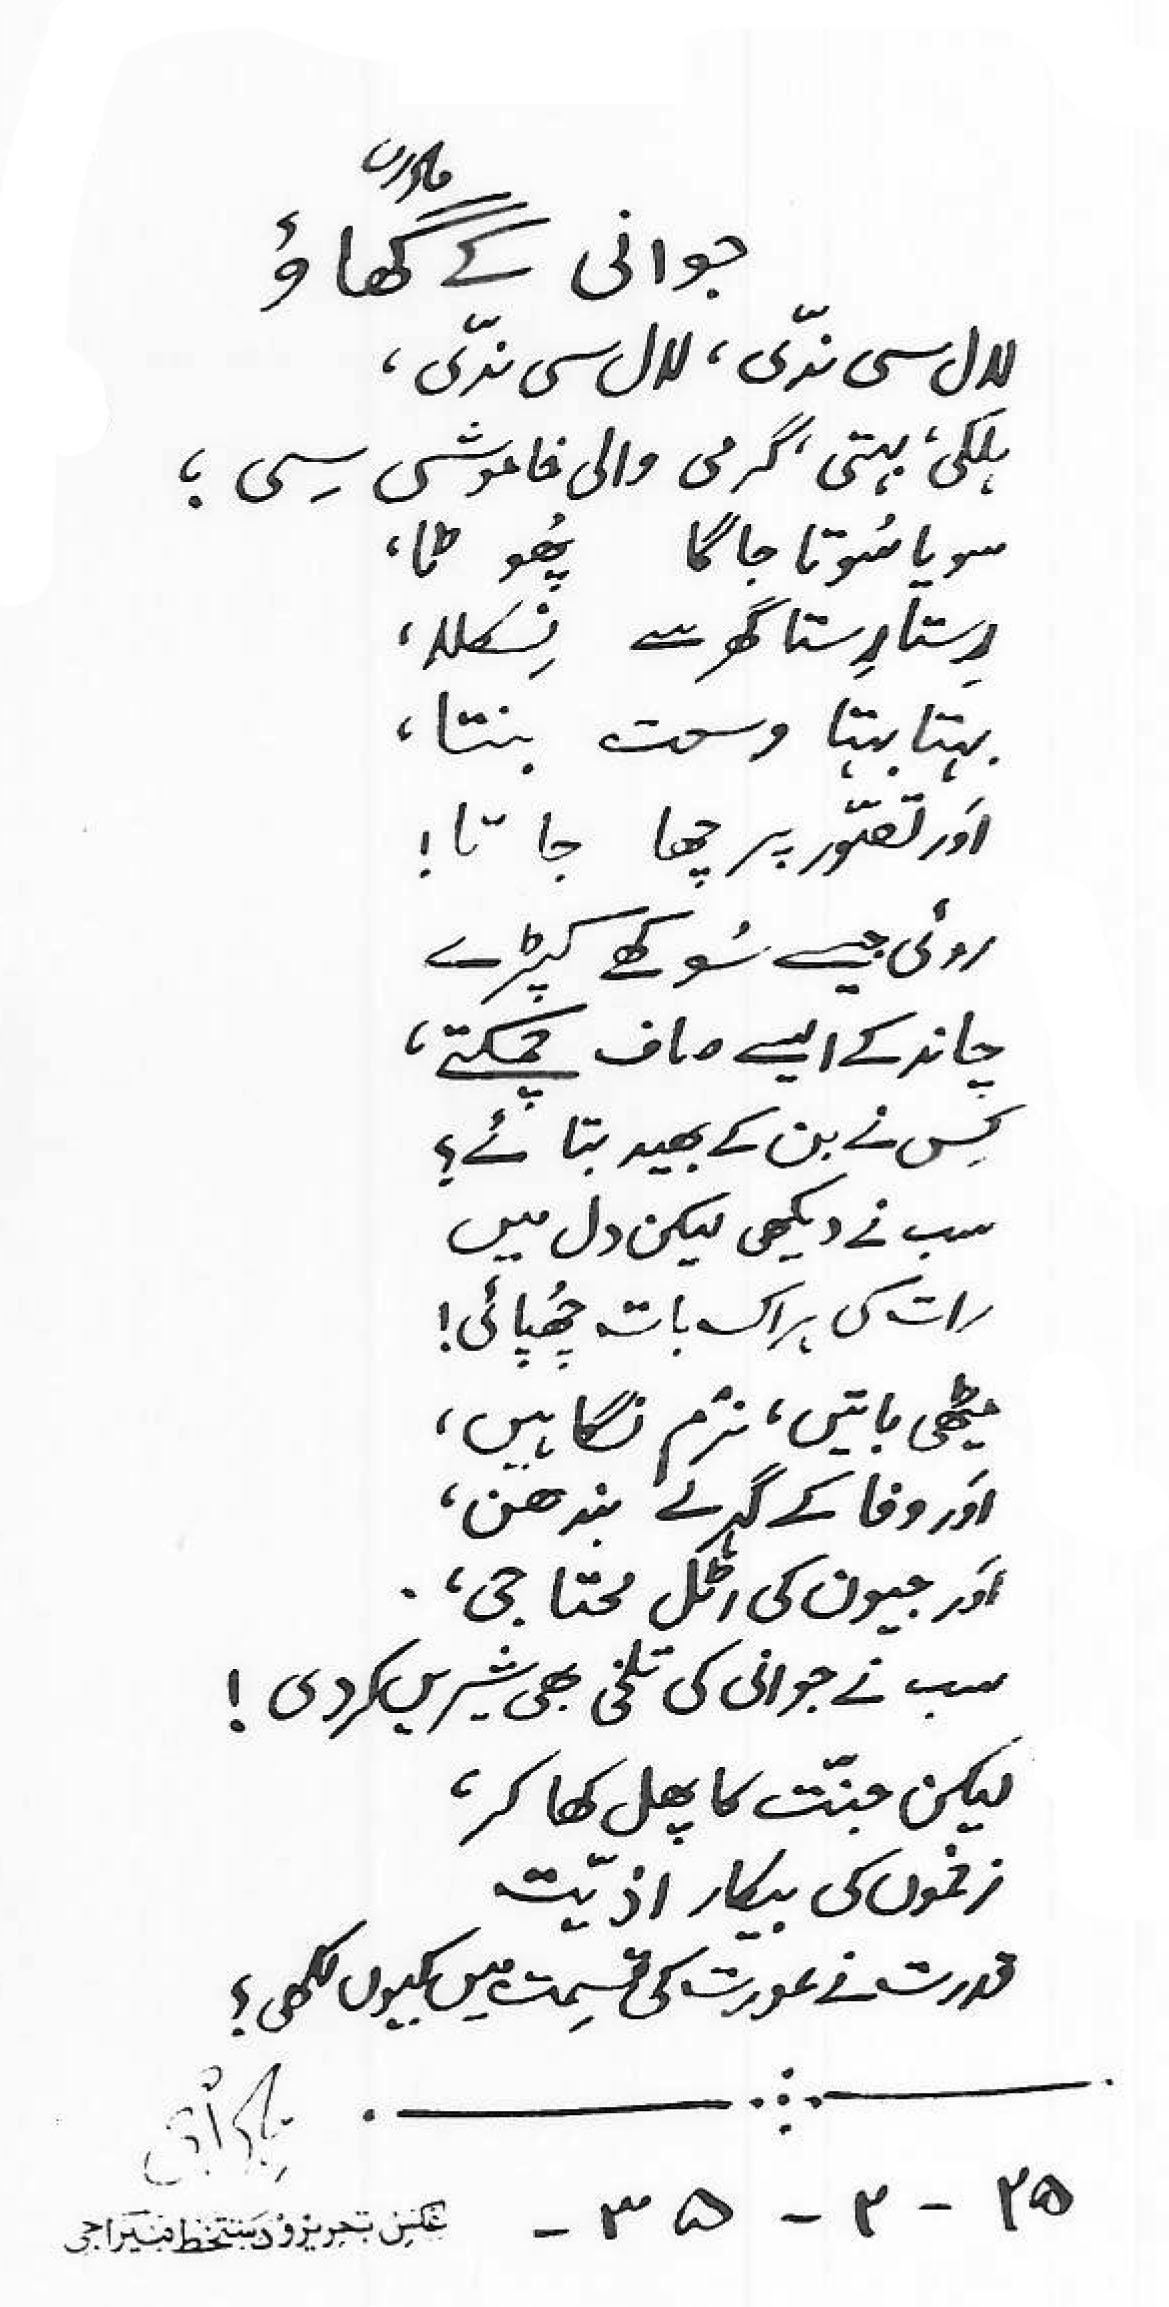 ماڈرن
جوانی کے گھاؤ
لال سی ندّی، لال سی ندّی،
ہلکی، بہتی، گرمی والی خاموشی سِی ؛
سویا سُوتا جاگا پُھو ٹا،
رِستا رِستا گھر سے نِکلا،
بہتا بہتا وسعت بنتا،
اَور تصّور پر چھا جا تا!
روئی جیسے سُوکھے کپڑے
چاند کے ایسے صاف چمکتے،
کِس نے بن کے بھید بتا ئے؟
سب نے دیکھی لیکن دل میں
رات کی ہر اک بات چُھپائی!
میٹھی باتیں، نرم نگاہیں،
اَور وفا کے گہرے بندھن،
اَور جیون کی اٹل محتاجی،
سب نے جوانی کی تلخی بھی شیریں کر دی !
لیکن جنّت کا پھل کھا کر،
زخموں کی بیکار اذیّت
قدرت نے عورت کی قِسمت میں کیوں لکھی؟
۲۵ - ۲ - ۳۵ -
عکسِ تحریر و دستخط میراجی